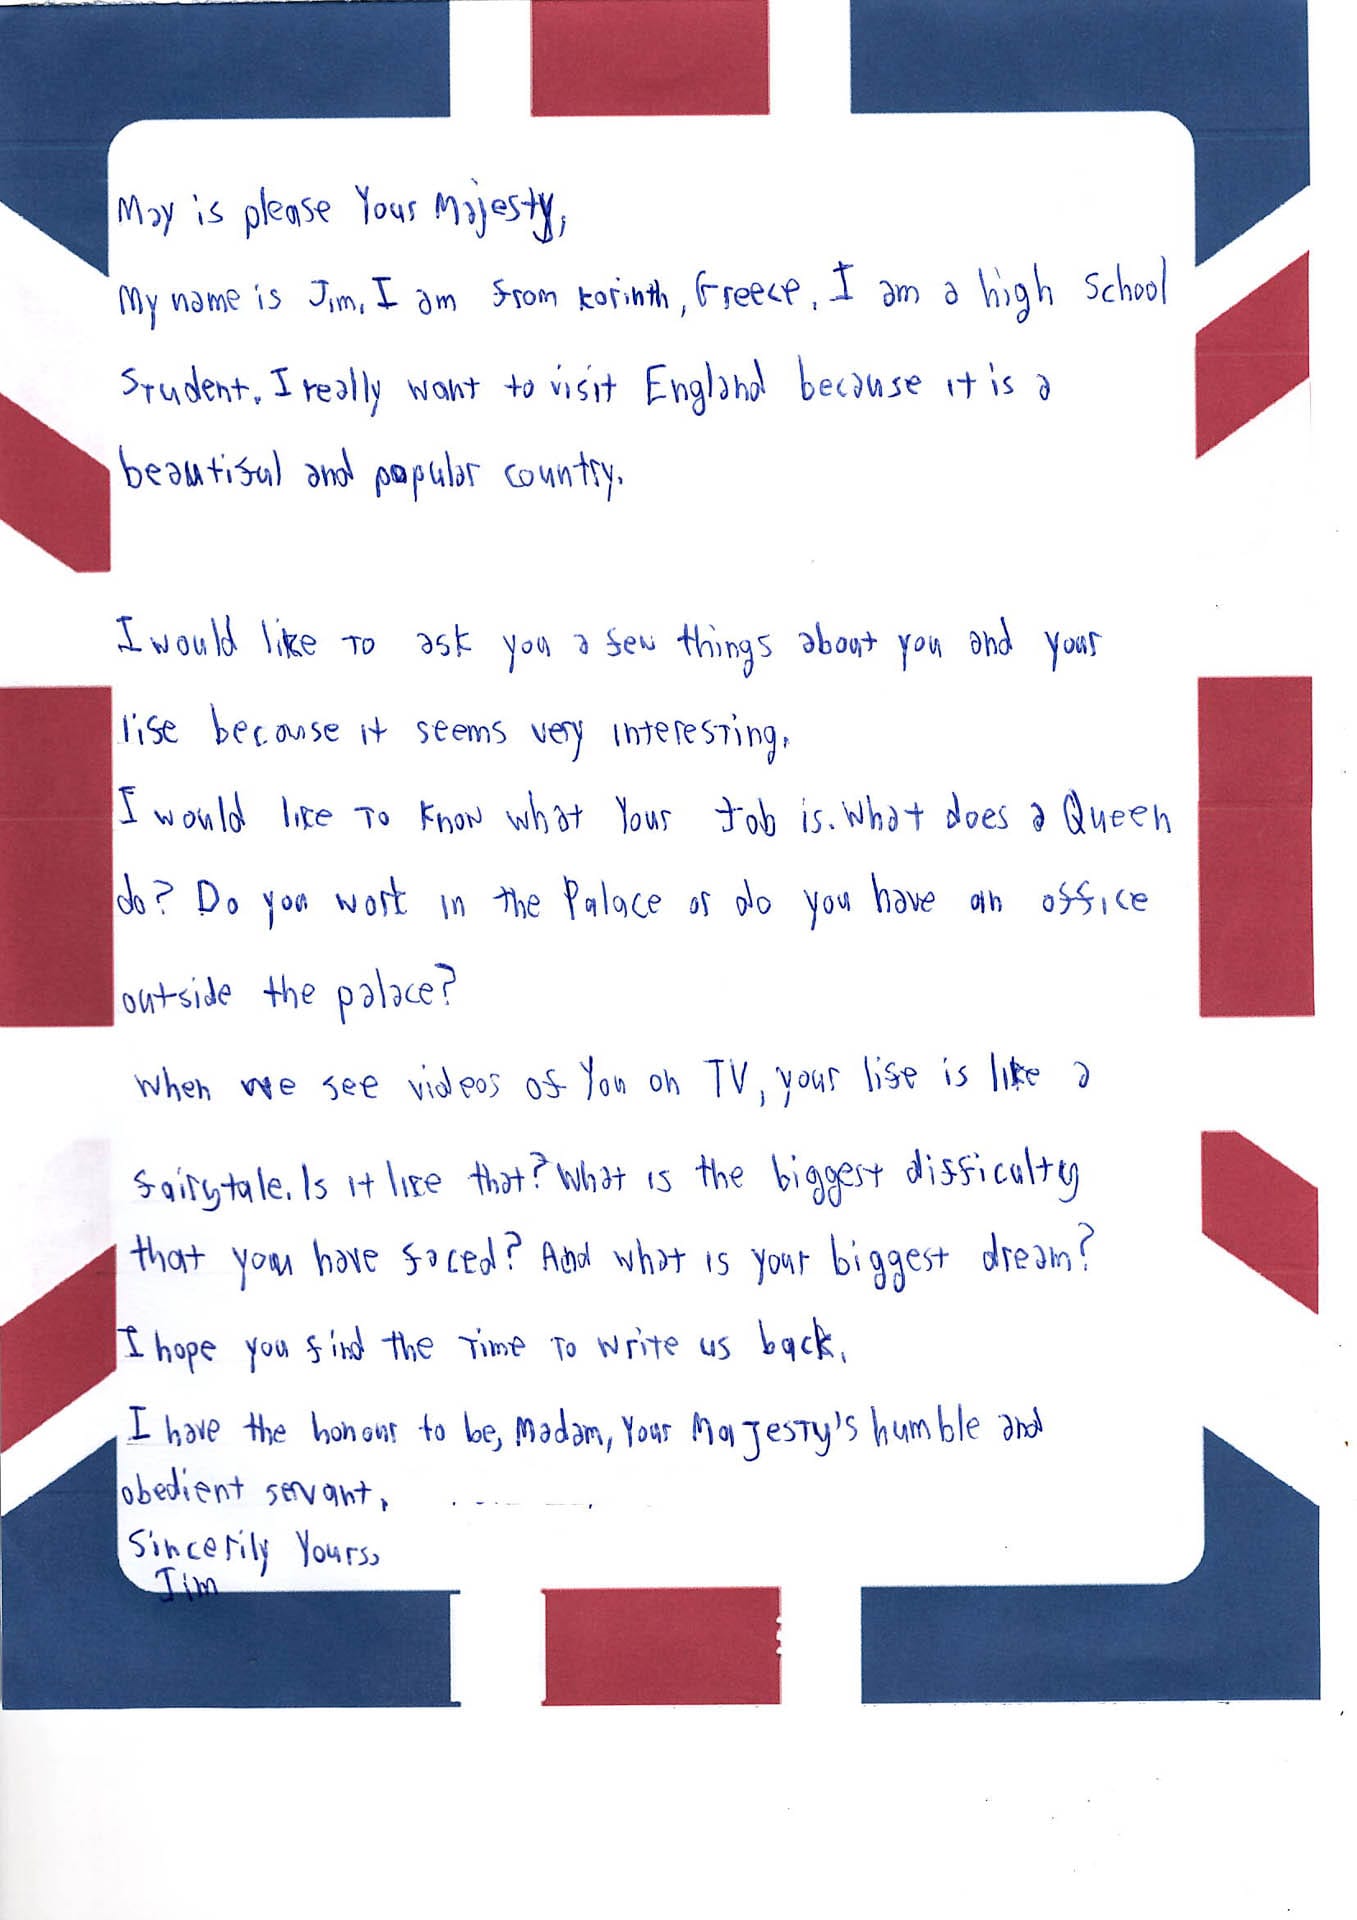 May is please Your Majesty,
My name is Jim. I am from Korinth, Greece. I am a high School
Student. I really want to visit England because it is a
beautiful and popular country.
I would like to ask you a few things about you and your
life because it seems very interesting.
I would like to know what Your Job is. What does a Queen
do? Do you work in the Palace or do you have an office
outside the palace?
When we see videos of You on TV, your life is like a
fairytale. Is it like that? What is the biggest difficulty
that you have faced? And what is your biggest dream?
I hope you find the time to write us back.
I have the honour to be, Madam, Your Majesty's humble and
obedient servant.
Sincerily Yours,
Jim